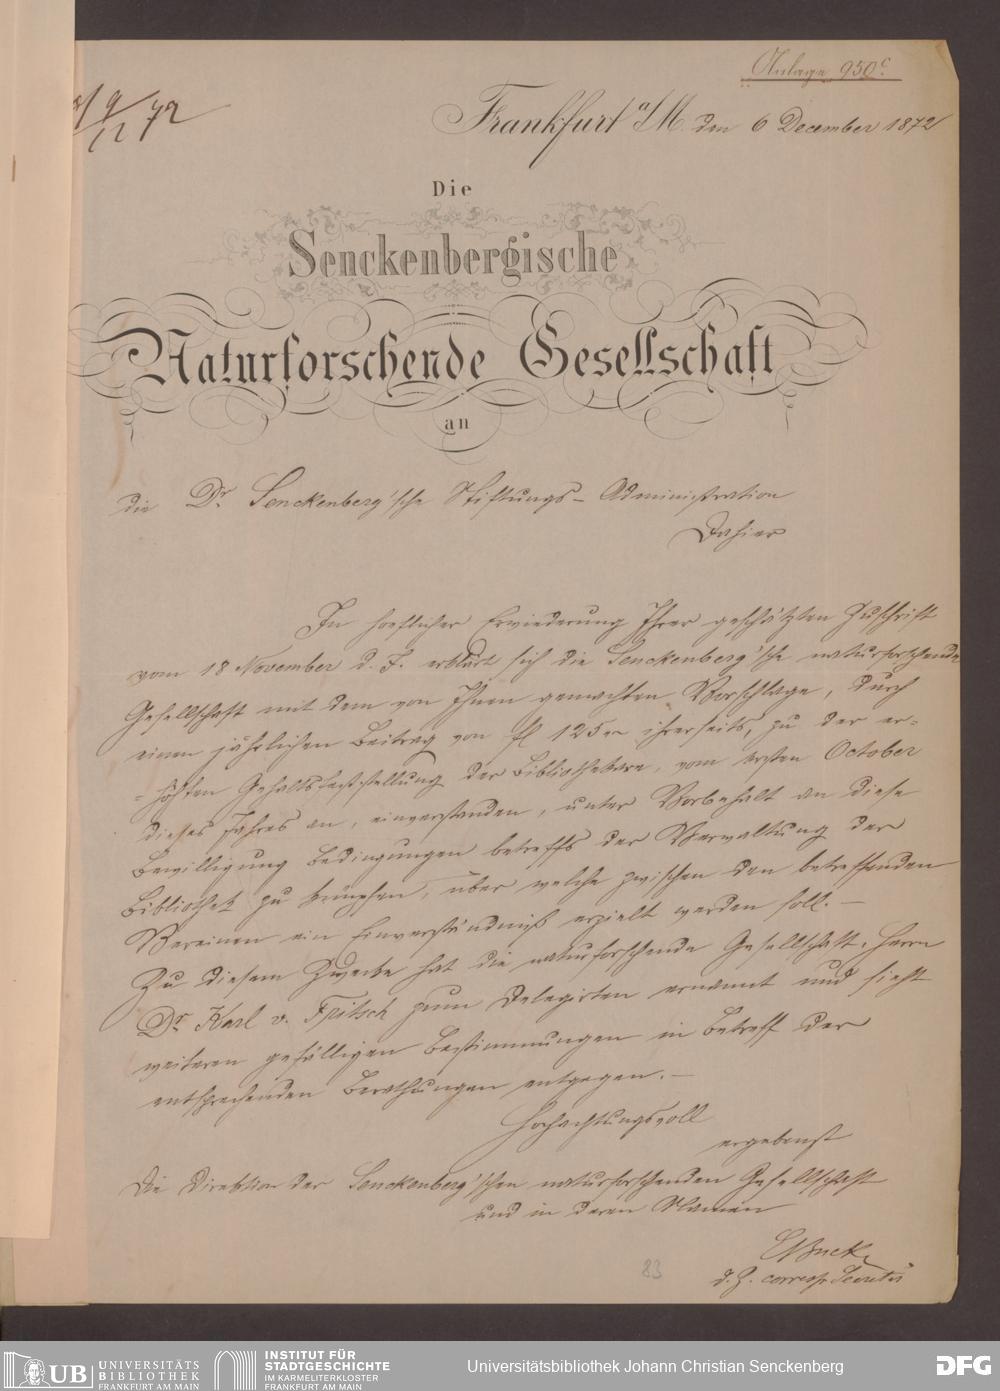 Anlage 950c.
9/12 72
Frankfurt a/M. den 6 December 1872
Die
Senckenbergische
Naturforschende Gesellschaft
an
die Dr. Senckenberg'sche Stiftungs-Administration
Dahier
In hoeflicher Erwiederung Ihrer geschätzten Zuschrift
vom 18 November d. J. erklärt sich die Senckenberg'sche naturforschende
Gesellschaft mit dem von Ihnen gemachten Vorschlage, durch
einen jährlichen Beitrag von fl 125 ihrerseits, zu der er=
=höhten Gehaltsfeststellung der Bibliothekare, vom ersten October
dieses Jahres an, einverstanden, unter Vorbehalt an diese
Bewilligung Bedingungen betreffs der Verwaltung der
Bibliothek zu knüpfen, über welche zwischen den betreffenden
Vereinen ein Einverständniß erzielt werden soll. —
Zu diesem Zwecke hat die naturforschende Gesellschaft, Herrn
Dr. Karl v. Fritsch zum Delegirten ernannt und sieht
weiteren gefälligen Bestimmungen in Betreff der
entsprechenden Berathungen entgegen. —
Hochachtungsvoll
ergebenst
Die Direktion der Senckenberg'schen naturforschenden Gesellschaft
und in deren Namen
E Buck
d. Z. corresp. Secretär
83
UB UNIVERSITÄTS
BIBLIOTHEK
FRANKFURT AM MAIN
INSTITUT FÜR
STADTGESCHICHTE
IM KARMELITERKLOSTER
FRANKFURT AM MAIN
Universitätsbibliothek Johann Christian Senckenberg
DFG